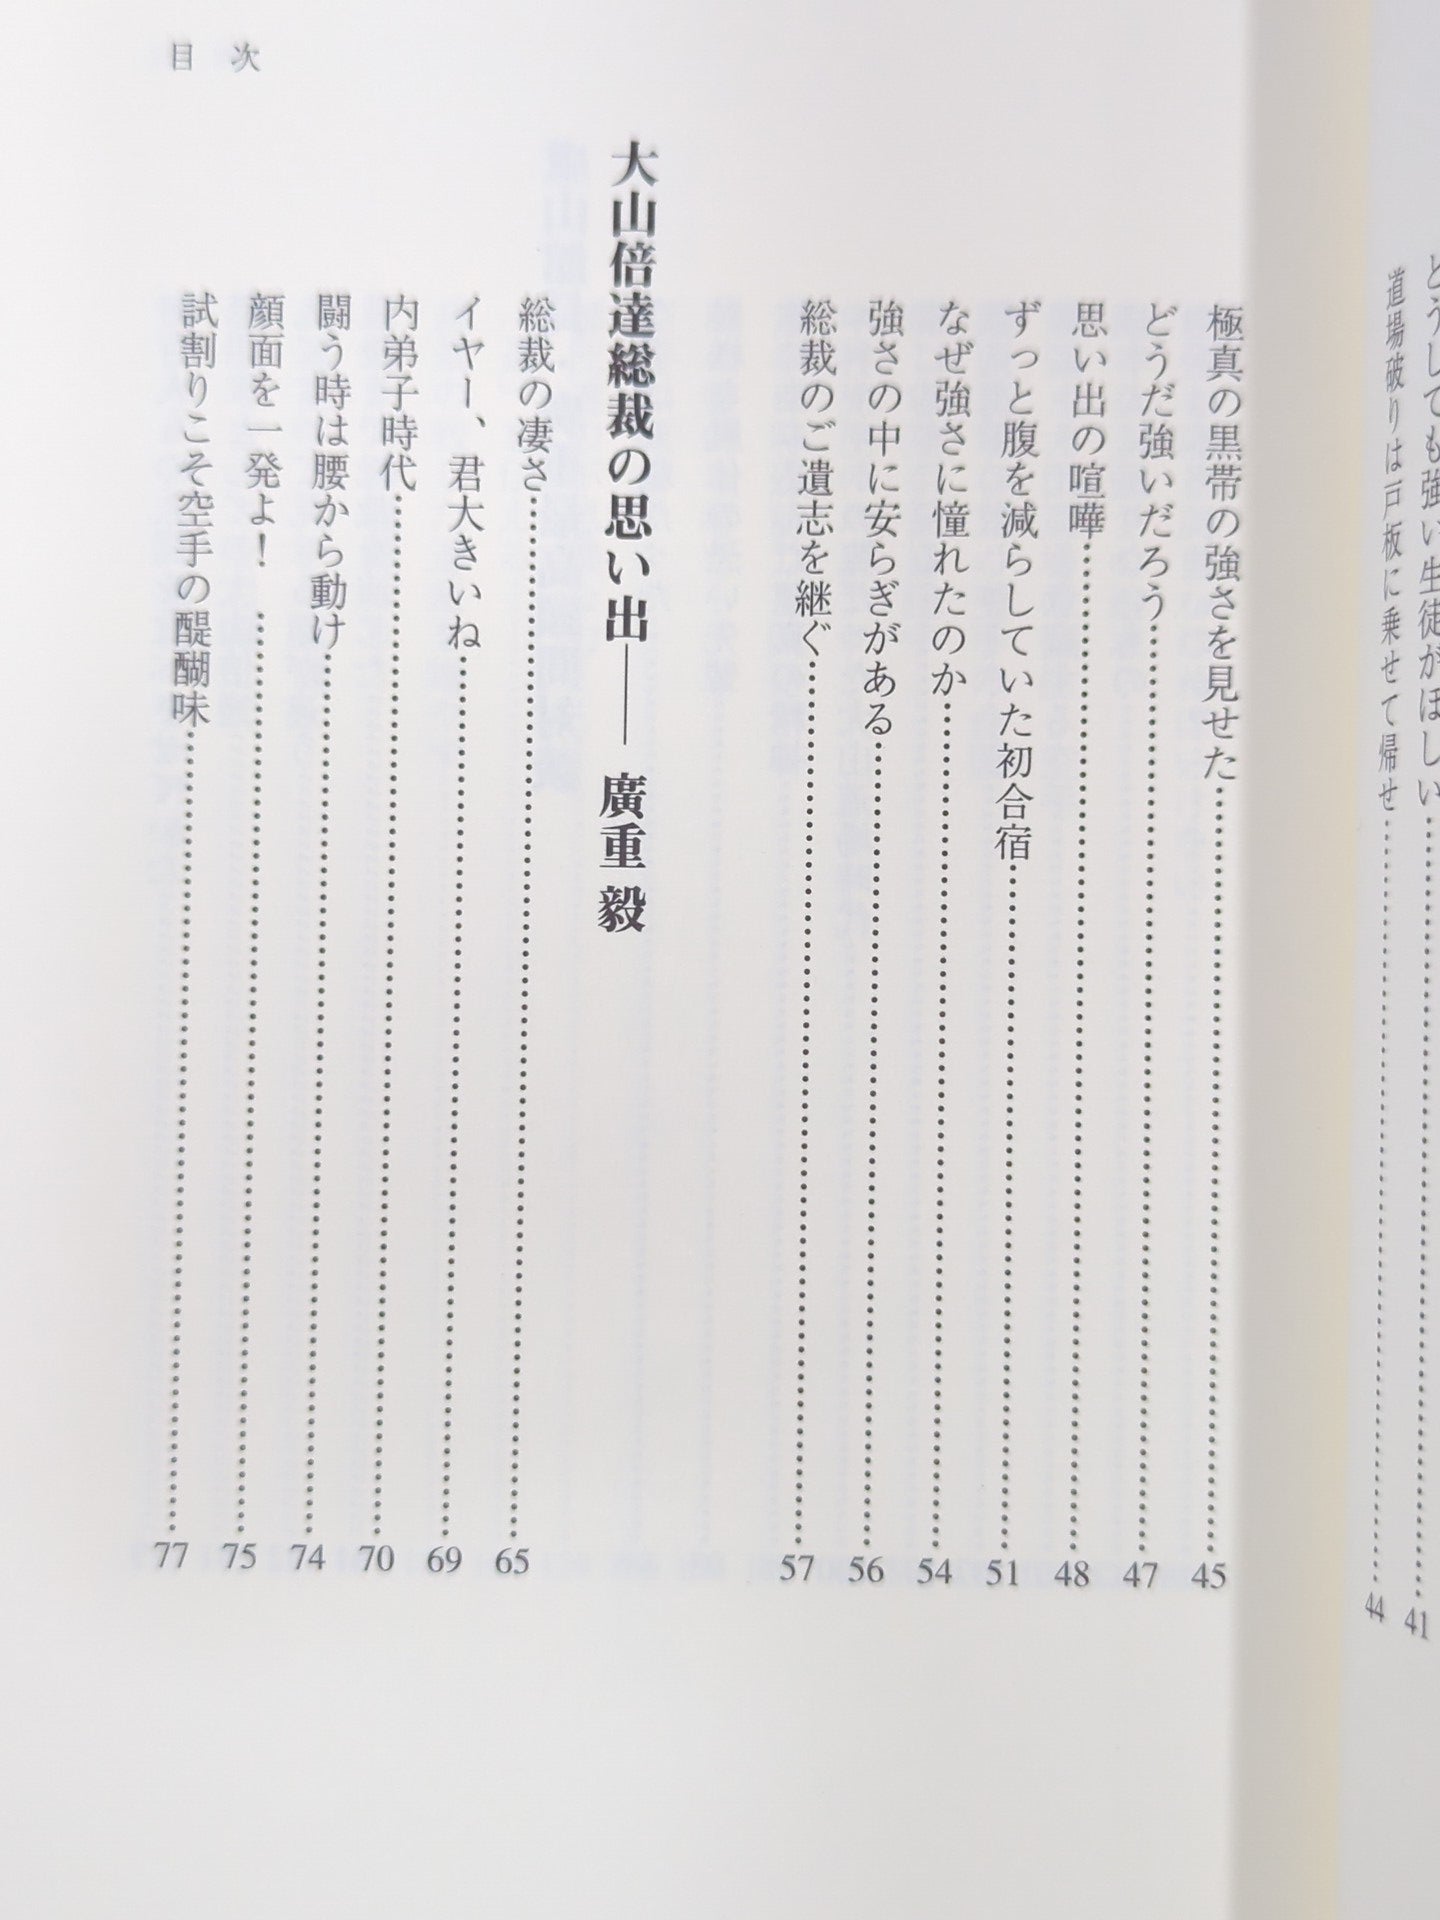 どうしても強い生徒がほしい……41
道場破りは戸板に乗せて帰せ……44
極真の黒帯の強さを見せた……45
どうだ強いだろう……47
思い出の喧嘩……48
ずっと腹を減らしていた初合宿……51
なぜ強さに憧れたのか……54
強さの中に安らぎがある……56
総裁のご遺志を継ぐ……57
大山倍達総裁の思い出── 廣重 毅
総裁の凄さ……65
イヤー、君大きいね……69
内弟子時代……70
闘う時は腰から動け……74
顔面を一発よ！……75
試割りこそ空手の醍醐味……77
目 次